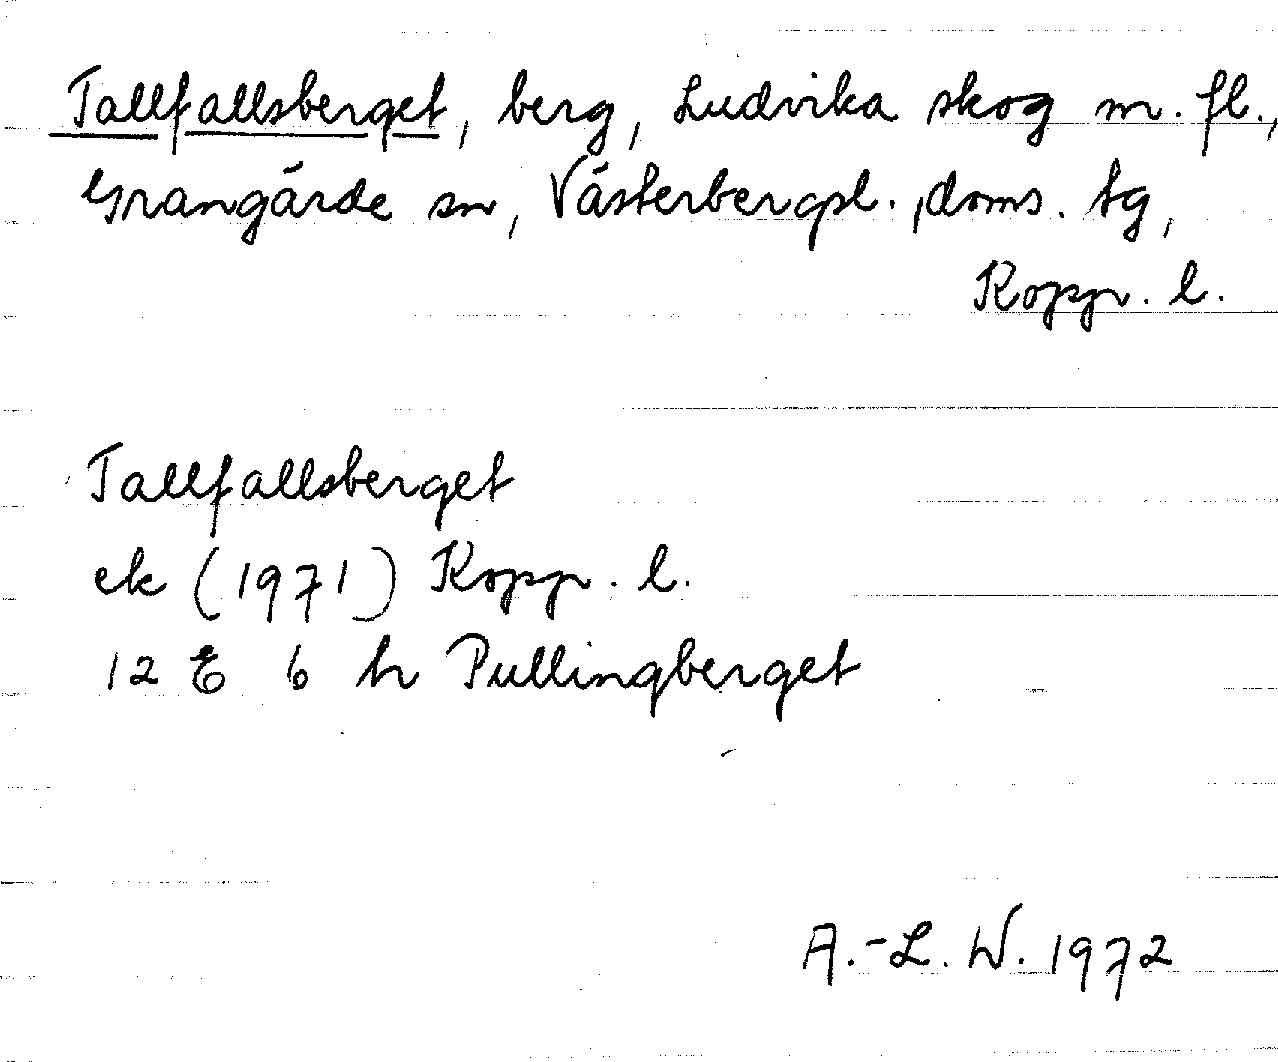 Tallfallsberget, berg, Ludvika skog m. fl.,
Grangärde sn, Västerbergsl., doms. tg,
Kopp. l.
Tallfallsberget
ek (1971) Kopp. l.
12 E 6 h Pullingberget
A.-L. W. 1972